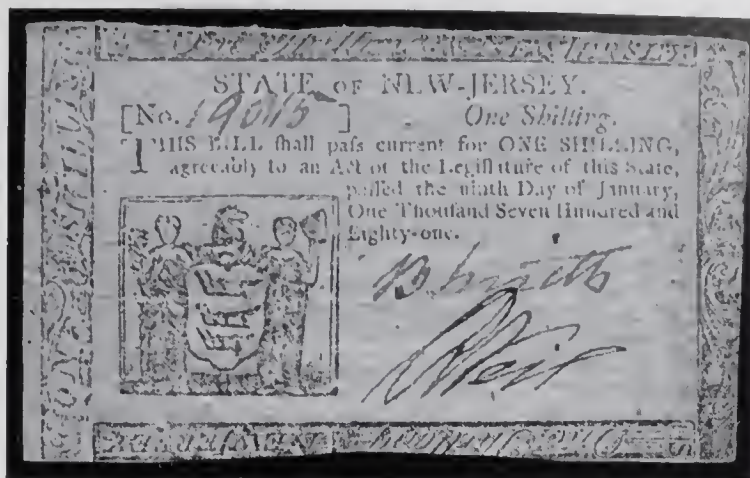 One Shilling. NEW-JERSEY.
STATE OF NEW-JERSEY.
[No. 19015 ] One Shilling.
THIS BILL ſhall paſs current for ONE SHILLING,
agreeably to an Act of the Legiſlature of this State,
paſſed the ninth Day of January,
One Thouſand Seven Hundred and
Eighty-one.
B. Smith
ONE SHILLING